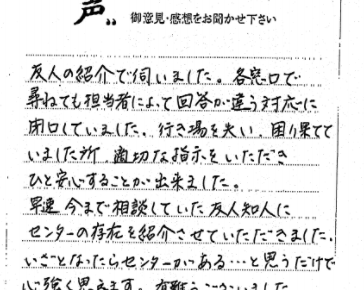 声
御意見・感想をお聞かせ下さい
友人の紹介で伺いました。各窓口で
尋ねても担当者によって回答が違う対応に
閉口していました。行き場を失い、困り果てて
いました所、適切な指示をいただき
ひと安心することが出来ました。
早速 今まで相談していた友人知人に
センターの存在を紹介させていただきました。
いざとなったらセンターがある…と思うだけで
心強く思えます。有難うございました